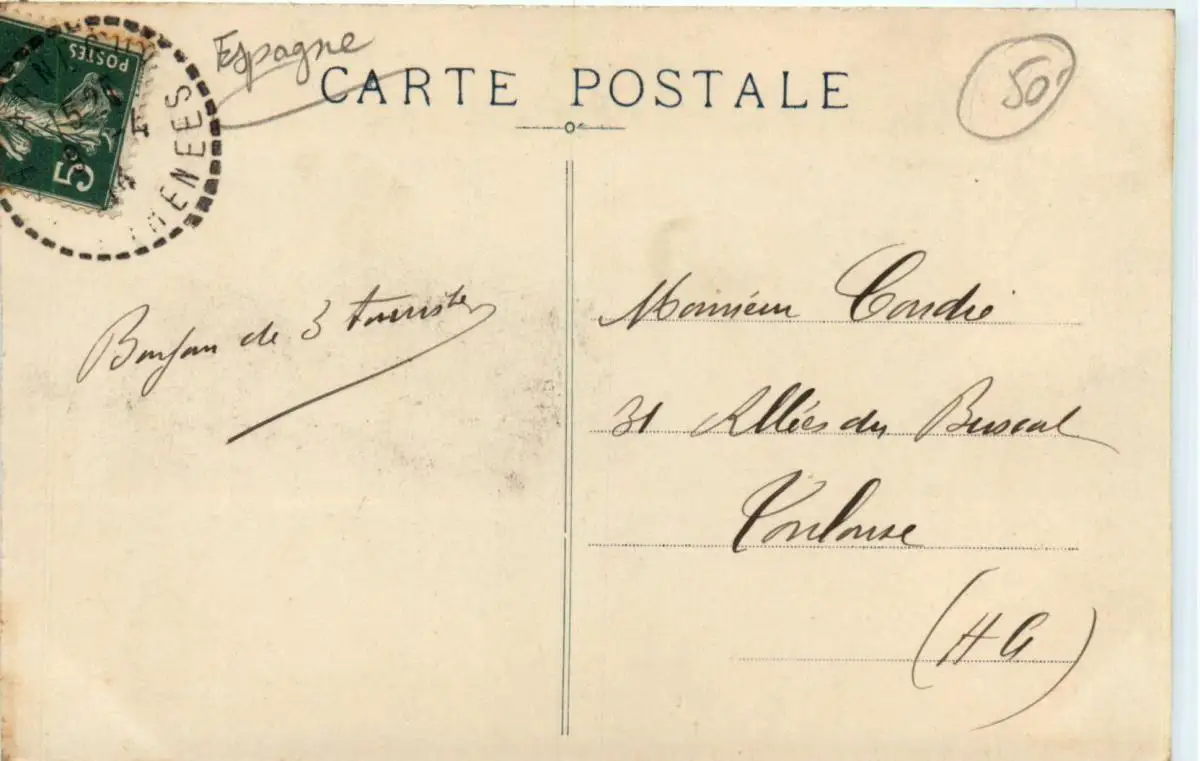 Espagne
CARTE POSTALE
50
POSTES
5
PYRENEES
Bonjour de 3 touristes
Monsieur Condré
31 Allées du Busca
Toulouse
(HG)